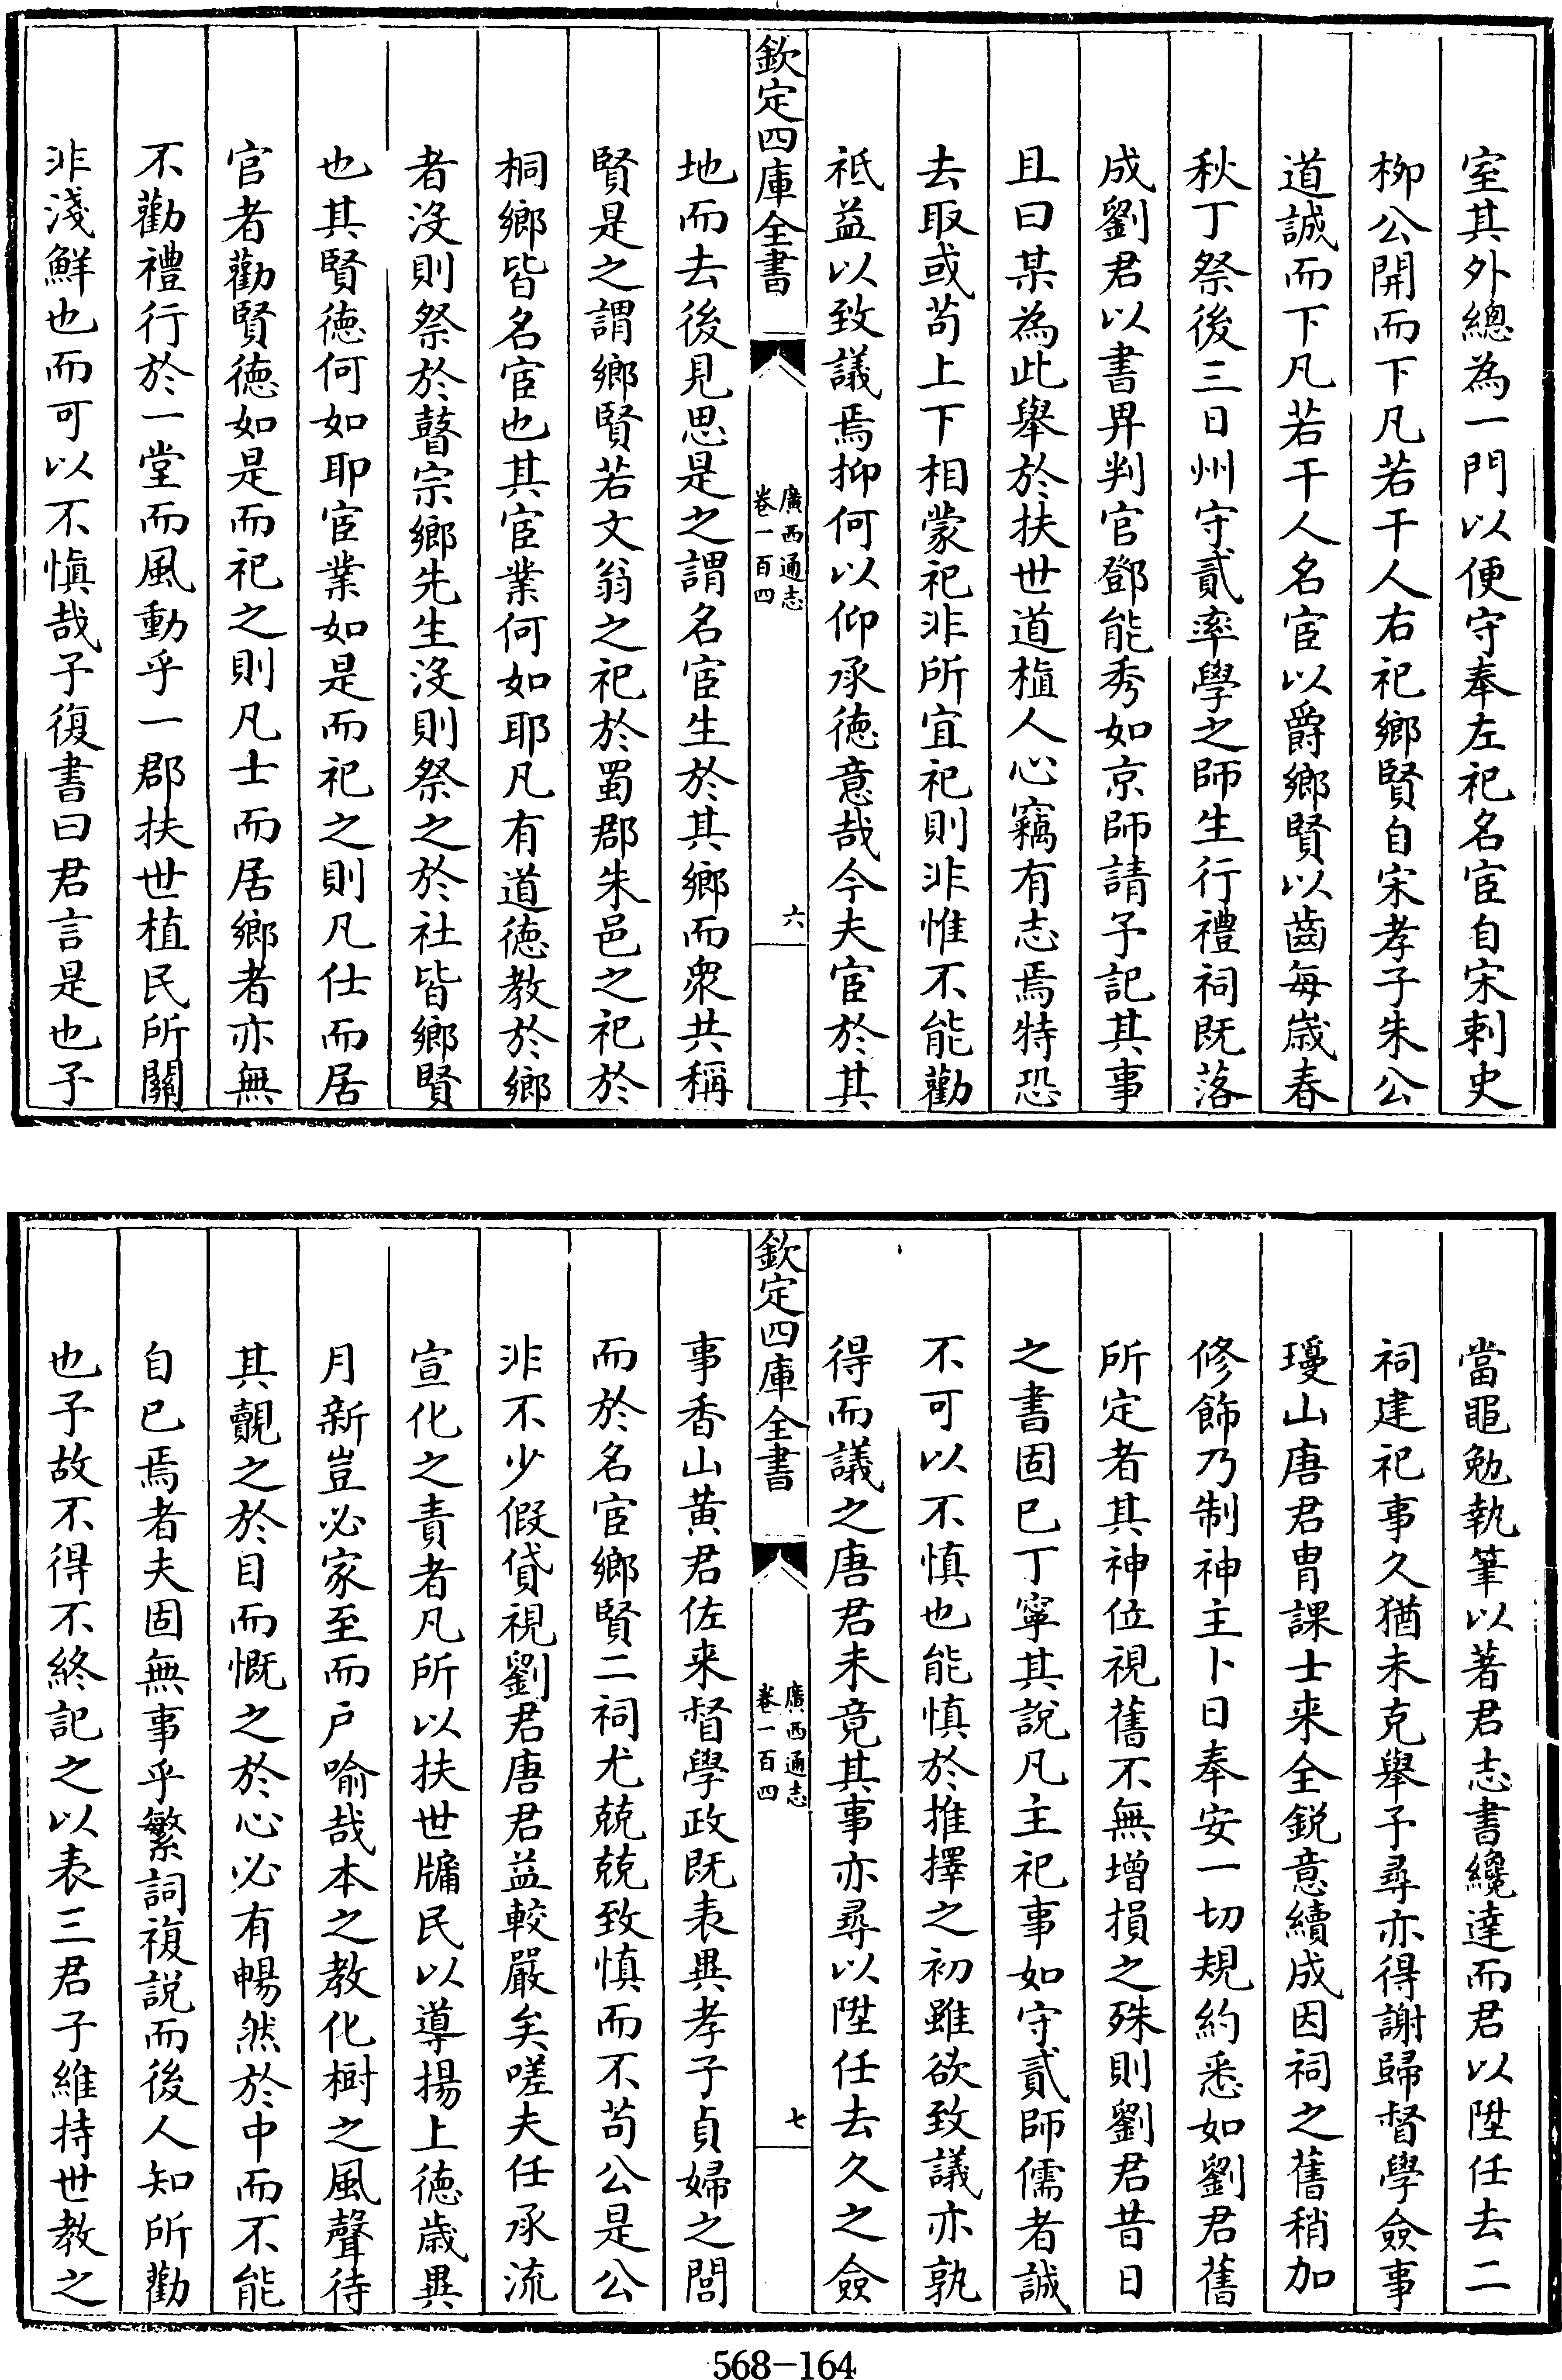 室其外總為一門以便守奉左祀名宦自宋刺史
柳公開而下凡若干人右祀鄉賢自宋孝子朱公
道誠而下凡若干人名宦以爵鄉賢以齒每歲春
秋丁祭後三日州守貳率學之師生行禮祠既落
成劉君以書畀判官鄧能秀如京師請予記其事
且曰某為此舉於扶世道植人心竊有志焉特恐
去取或茍上下相蒙祀非所宜祀則非惟不能勸
祗益以致議焉抑何以仰承徳意哉今夫宦於其
欽定四庫全書
廣西通志
卷一百四
六
地而去後見思是之謂名宦生於其鄉而衆共稱
賢是之謂鄉賢若文翁之祀於蜀郡朱邑之祀於
桐鄉皆名宦也其宦業何如耶凡有道徳教於鄉
者沒則祭於瞽宗鄉先生沒則祭之於社皆鄉賢
也其賢徳何如耶宦業如是而祀之則凡仕而居
官者勸賢徳如是而祀之則凡士而居鄉者亦無
不勸禮行於一堂而風動乎一郡扶世植民所關
非淺鮮也而可以不慎哉予復書曰君言是也予
當黽勉執筆以著君志書纔達而君以陞任去二
祠建祀事久猶未克舉予尋亦得謝歸督學僉事
瓊山唐君胄課士来全銳意續成因祠之舊稍加
修飾乃制神主卜日奉安一切規約悉如劉君舊
所定者其神位視舊不無增損之殊則劉君昔日
之書固已丁寧其說凡主祀事如守貳師儒者誠
不可以不慎也能慎於推擇之初雖欲致議亦孰
得而議之唐君未竟其事亦尋以陞任去久之僉
欽定四庫全書
廣西通志
卷一百四
七
事香山黄君佐来督學政既表異孝子貞婦之閭
而於名宦鄉賢二祠尤兢兢致慎而不茍公是公
非不少假貸視劉君唐君益較嚴矣嗟夫任承流
宣化之責者凡所以扶世牖民以導揚上徳歲異
月新豈必家至而户喻哉本之教化樹之風聲待
其覿之於目而慨之於心必有暢然於中而不能
自已焉者夫固無事乎繁詞複說而後人知所勸
也予故不得不終記之以表三君子維持世教之
568-164